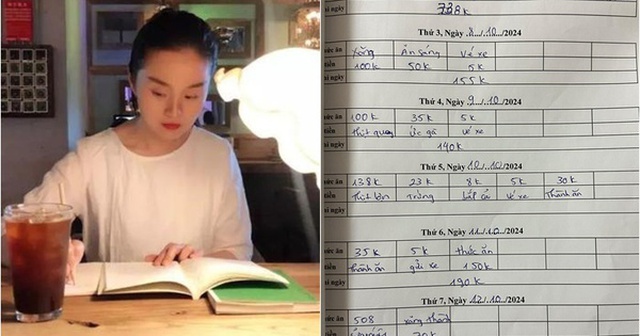 738k
i ngày
Thứ 3, Ngày 8./.10./2024
ức ăn Xăng Ăn sáng Vé xe
tiền 100k 50k 5k
i ngày 155k
Thứ 4, Ngày 9./.10./2024
ức ăn 100k 35k 5k
tiền thịt quay ức gà vé xe
i ngày 140k
Thứ 5, Ngày 10./10./2024
ức ăn 138k 23k 8k 5k 30k
tiền thịt lợn Trứng bắt cải vé xe Thành ăn
i ngày
Thứ 6, Ngày 11./.10./2024
ức ăn 35k 5k thức ăn
tiền thành ăn gửi xe 150k
i ngày 190k
Thứ 7, Ngày 12./.10./2024
ức ăn 508 xăng
tiền 70k